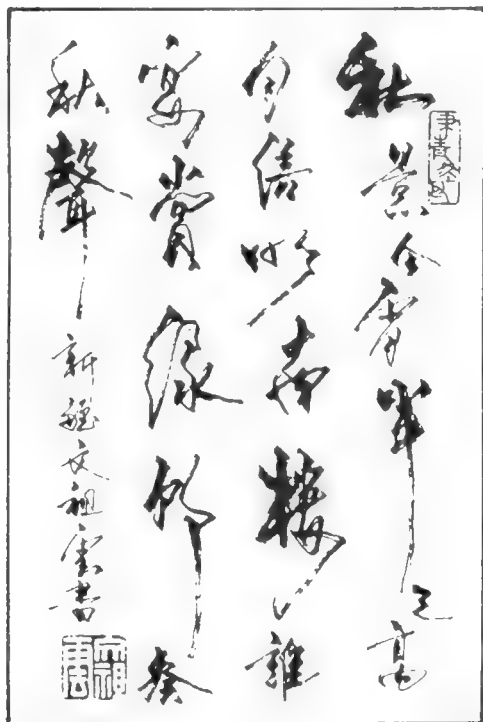 秋景今宵半天高
月倍明南樓誰
宴賞絲竹奏
秋聲 新疆文祖雲書